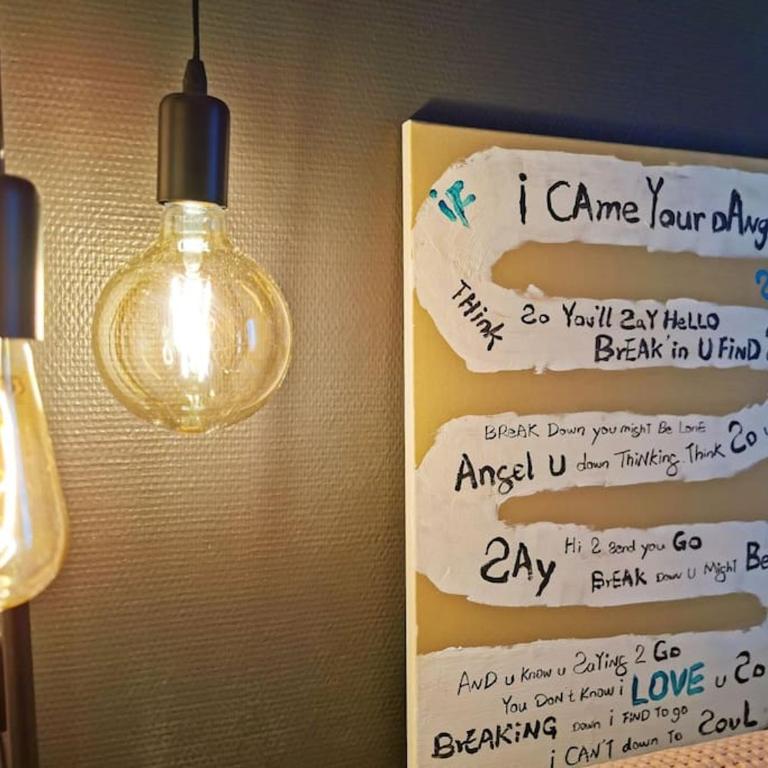 iF
i CAme Your DAng
THink
So You'll SaY HeLLO
BrEAK'in U FiND
BReAK Down you might Be Lone
So
Angel U down ThiNking. Think
SAy Hi 2 Send you GO
BrEAK Down U Might Be
AND u know u SaYiNg 2 Go
You DoN't Know i LOVE u So
BrEAKiNG Down i FiND To go
i CAN'T down To SouL